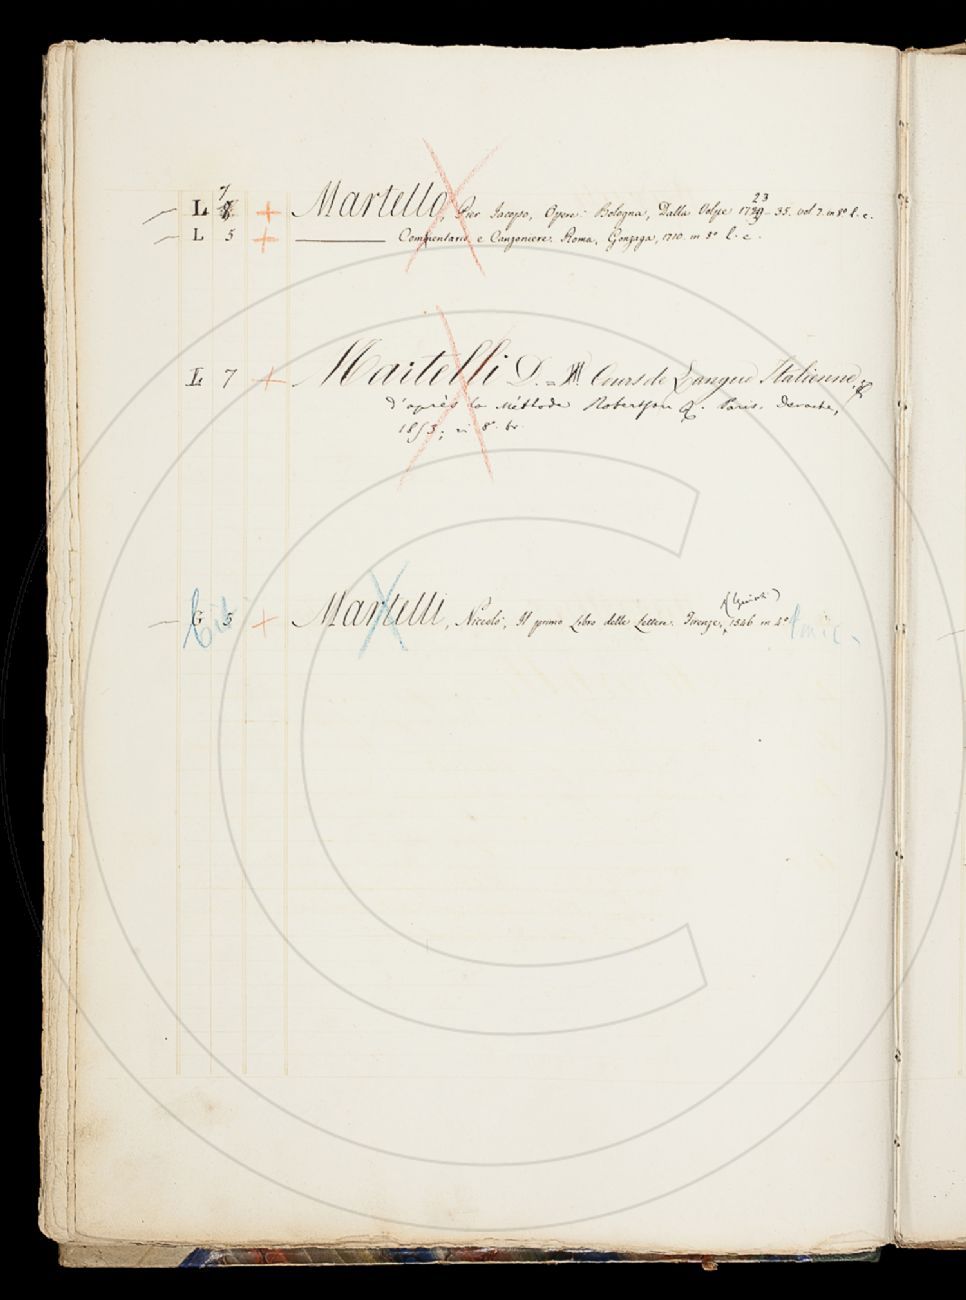 7
— L + Martello, Pier Jacopo, Opere. Bologna, Dalla Volpe 1723 - 35. vol 7. in 8° l. c.
— L 5 + ——— Commentario e Canzoniere. Roma, Gonzaga, 1710. in 8° l. c.
L 7 + Martelli D. = Cours de Langue Italienne,
d'après la Méthode Robertson &. Paris. Derache,
1853; in 8° br.
— G 5 + Martelli, Niccolò, Il primo Libro delle Lettere. Firenze, 1546 in 4°